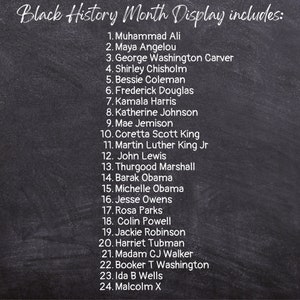 Black History Month Display includes:
1. Muhammad Ali
2. Maya Angelou
3. George Washington Carver
4. Shirley Chisholm
5. Bessie Coleman
6. Frederick Douglas
7. Kamala Harris
8. Katherine Johnson
9. Mae Jemison
10. Coretta Scott King
11. Martin Luther King Jr
12. John Lewis
13. Thurgood Marshall
14. Barak Obama
15. Michelle Obama
16. Jesse Owens
17. Rosa Parks
18. Colin Powell
19. Jackie Robinson
20. Harriet Tubman
21. Madam CJ Walker
22. Booker T Washington
23. Ida B Wells
24. Malcolm X